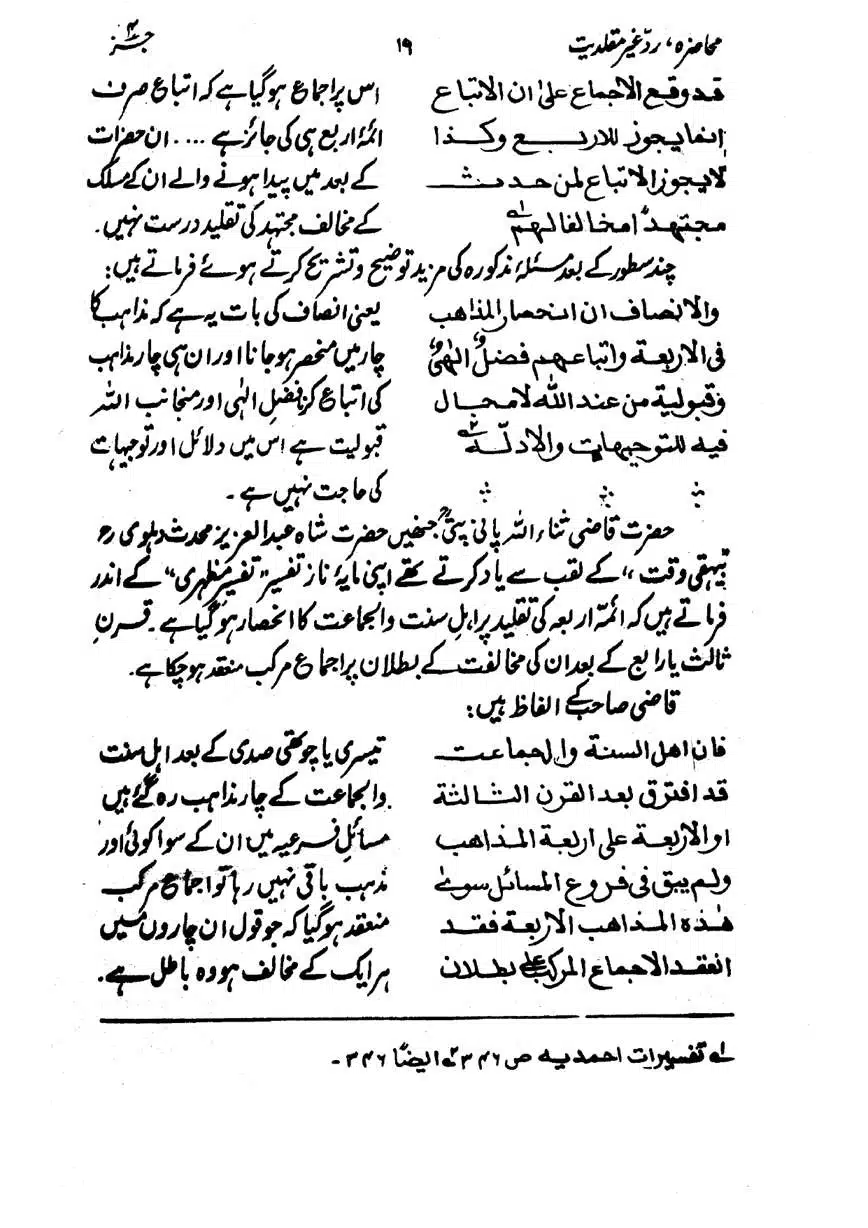 محاضرہ، ردّ غیر مقلدیت ۱۹ جز ۳
قد وقع الاجماع علیٰ ان الاتباع
انما یجوز للاربع وکذا
لا یجوز الاتباع لمن حدث
مجتھداً مخالفا لھم ۱؎
اس پر اجماع ہو گیا ہے کہ اتباع صرف
ائمۂ اربع ہی کی جائز ہے .... ان حضرات
کے بعد میں پیدا ہونے والے ان کے مسلک
کے مخالف مجتہد کی تقلید درست نہیں.
چند سطور کے بعد مسئلۂ مذکورہ کی مزید توضیح و تشریح کرتے ہوئے فرماتے ہیں:
والانصاف ان انحصار المذاھب
فی الاربعۃ واتباعھم فضل الٰھی
وقبولیۃ من عند اللہ لا مجال
فیہ للتوجیھات والادلۃ ۲؎
یعنی انصاف کی بات یہ ہے کہ مذاہب کا
چار میں منحصر ہو جانا اور ان ہی چار مذاہب
کی اتباع کرنا فضلِ الٰہی اور منجانب اللہ
قبولیت ہے اس میں دلائل اور توجیہات
کی حاجت نہیں ہے۔
حضرت قاضی ثناء اللہ پانی پتیؒ جنھیں حضرت شاہ عبدالعزیز محدث دہلوی رح
بیہقی وقت“ کے لقب سے یاد کرتے تھے اپنی مایۂ ناز تفسیر ”تفسیر مظہری“ کے اندر
فرماتے ہیں کہ ائمۂ اربعہ کی تقلید پر اہلِ سنت والجماعت کا انحصار ہو گیا ہے۔ قرنِ
ثالث یا رابع کے بعد ان کی مخالفت کے بطلان پر اجماع مرکب منعقد ہو چکا ہے.
قاضی صاحب کے الفاظ ہیں:
فان اھل السنۃ والجماعت
قد افترق بعد القرن الثالثۃ
او الاربعۃ علی اربعۃ المذاھب
ولم یبق فی فروع المسائل سویٰ
ھٰذہ المذاھب الاربعۃ فقد
انعقد الاجماع المرکب علی بطلان
تیسری یا چوتھی صدی کے بعد اہل سنت
والجماعت کے چار مذاہب رہ گئے ہیں
مسائلِ فرعیہ میں ان کے سوا کوئی اور
مذہب باقی نہیں رہا تو اجماع مرکب
منعقد ہو گیا کہ جو قول ان چاروں میں
ہر ایک کے مخالف ہو وہ باطل ہے.
۱؎ تفسیرات احمدیہ ص ۳۴۶ ۲؎ ایضًا ۳۴۶۔